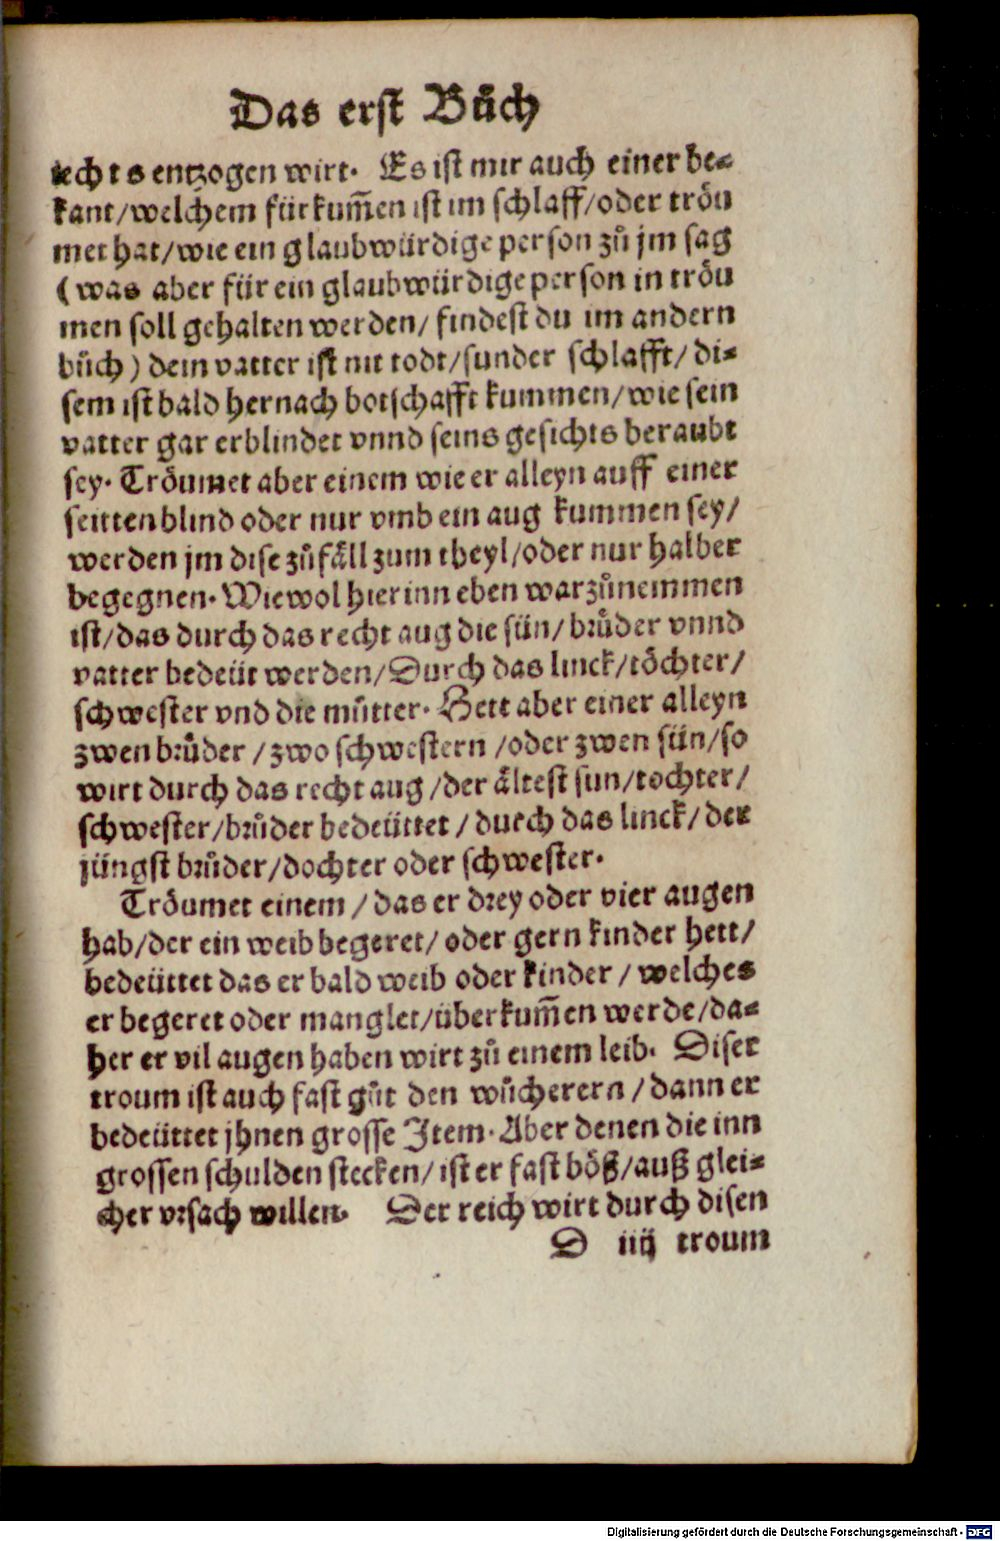 Das erst Bůch
iechts entzogen wirt. Es ist mir auch einer be⸗
kant/welchem fürkum̃en ist im schlaff/oder tröu
met hat/wie ein glaubwürdige person zů jm sag
(was aber für ein glaubwürdige person in tröu
men soll gehalten werden/ findest du im andern
bůch) dein vatter ist nit todt/sunder schlafft/ di⸗
sem ist bald hernach botschafft kummen/wie sein
vatter gar erblindet vnnd seins gesichts beraubt
sey. Tröumet aber einem wie er alleyn auff einer
seitten blind oder nur vmb ein aug kummen sey/
werden jm dise zůfäll zum theyl/oder nur halber
begegnen. Wiewol hierinn eben warzůnemmen
ist/das durch das recht aug die sün/brůder vnnd
vatter bedeüt werden/Durch das linck/töchter/
schwester vnd die můtter. Hett aber einer alleyn
zwen brůder /zwo schwestern /oder zwen sün/so
wirt durch das recht aug /der ältest sun/tochter/
schwester/brůder bedeüttet / durch das linck/ der
jüngst brůder/dochter oder schwester.
Tröumet einem / das er drey oder vier augen
hab/der ein weib begeret/ oder gern kinder hett/
bedeüttet das er bald weib oder kinder / welches
er begeret oder manglet/überkum̃en werde/da⸗
her er vil augen haben wirt zů einem leib. Diser
troum ist auch fast gůt den wůcherern / dann er
bedeüttet jhnen grosse Item. Aber denen die inn
grossen schulden stecken/ ist er fast böß/auß glei⸗
cher vrsach willen. Der reich wirt durch disen
D iiij troum
Digitalisierung gefördert durch die Deutsche Forschungsgemeinschaft - DFG